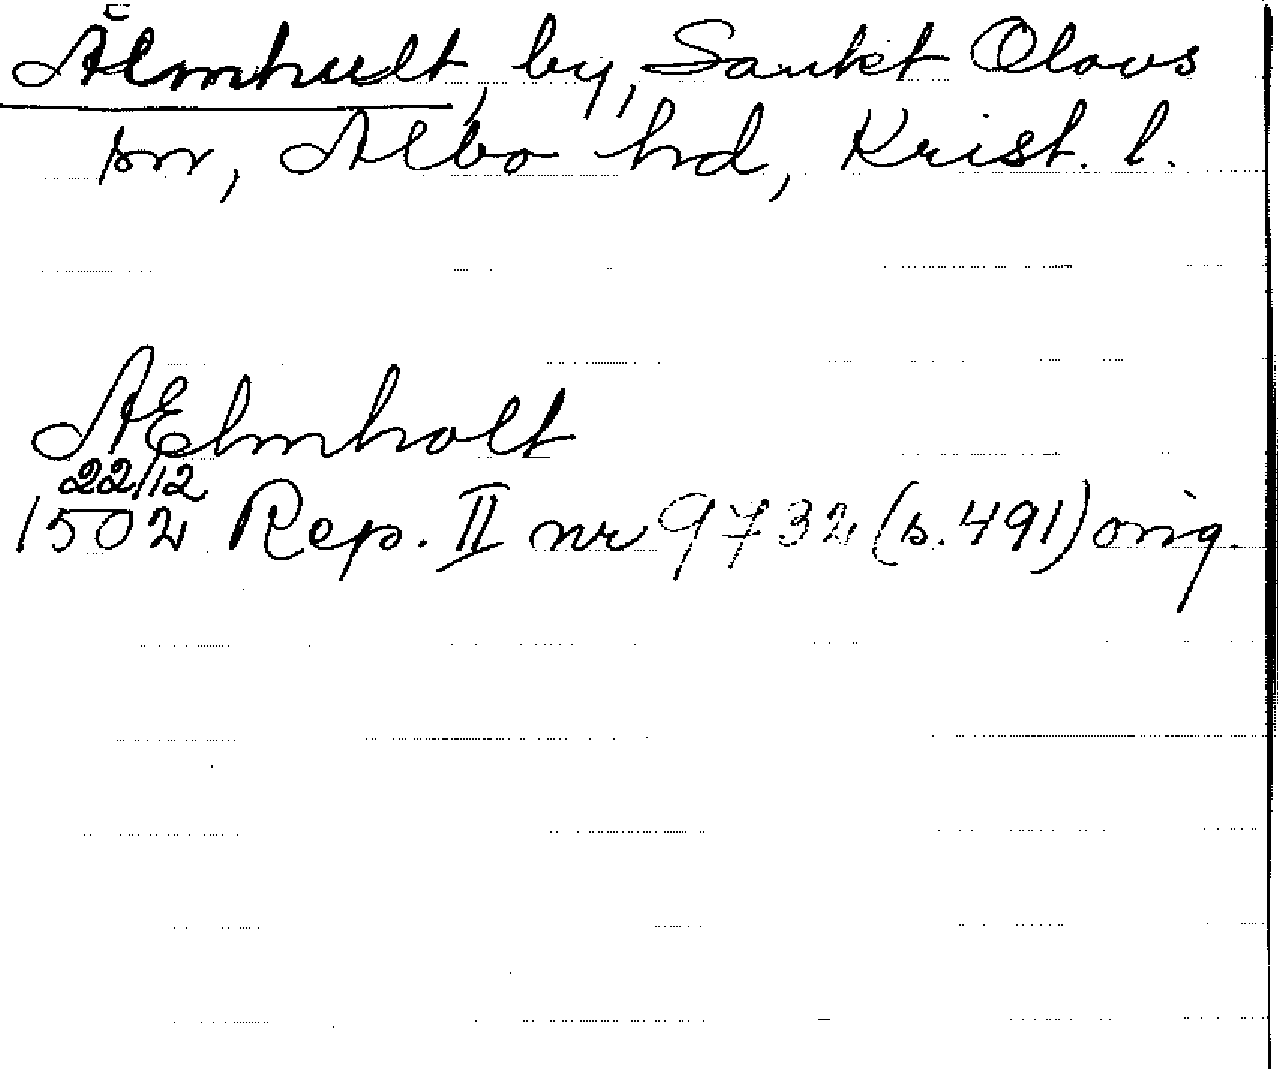 Älmhult, by, Sankt Olovs
sn, Albo hd, Krist. l.
AElmholt
22/12
1502 Rep. II nr 9732 (s. 491) orig.